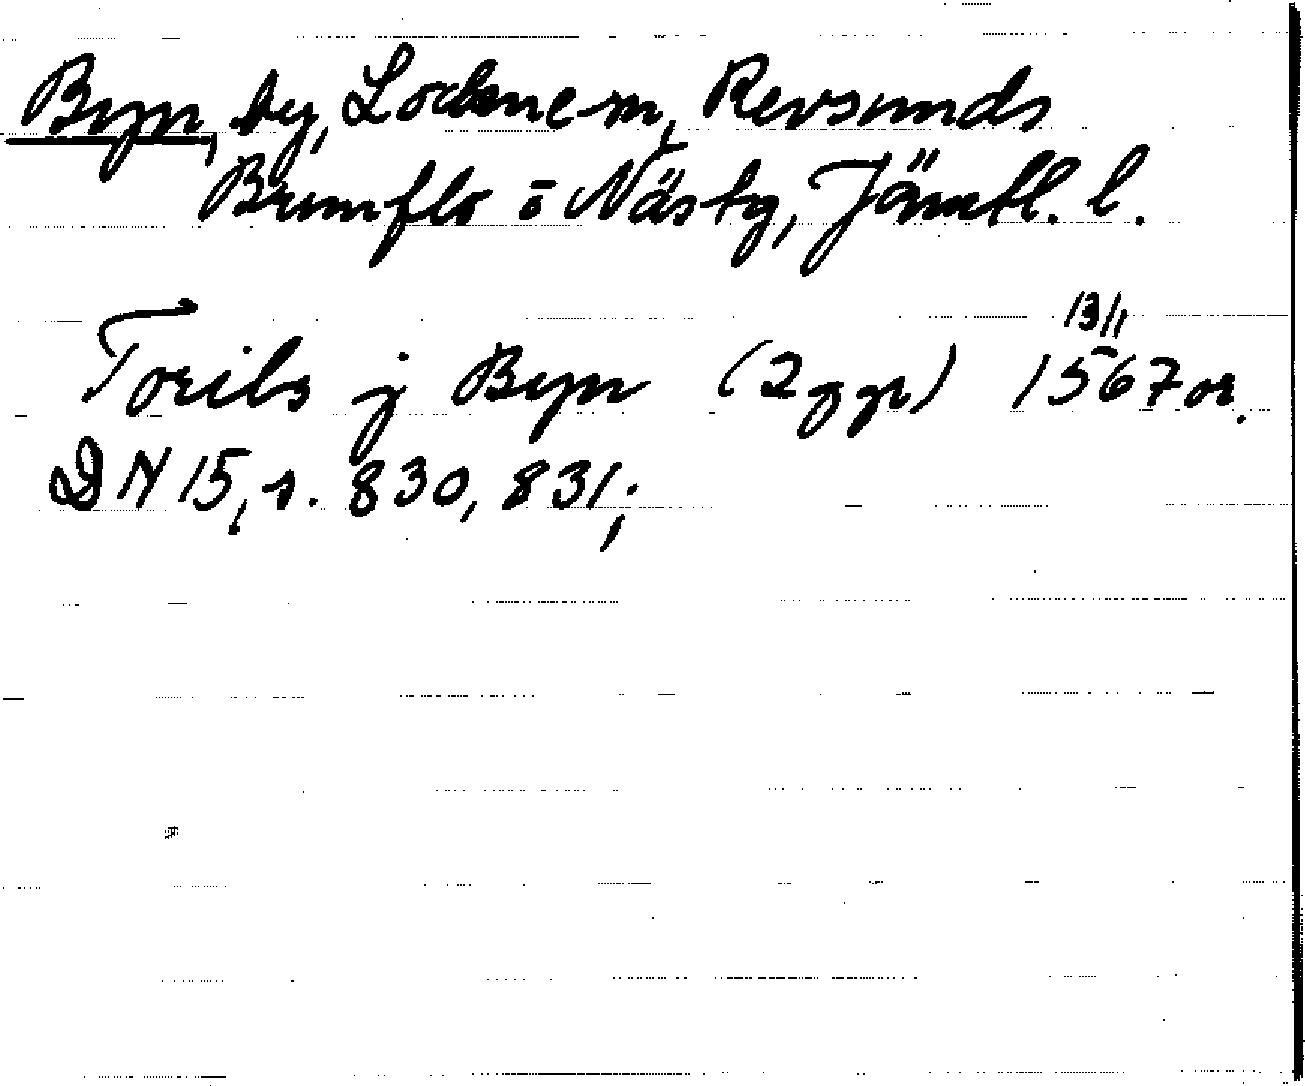 Byn, by, Lockne sn, Revsunds
Brunflo o Näs tg, Jämtl. l.
13/1
Torils j Byn (2 ggr) 1567 or.
DN 15, s. 830, 831;